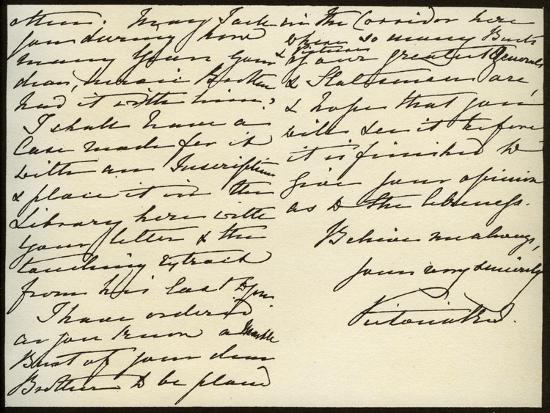 other. May I ask
you during how
many years your
dear, heroic Brother
had it with him?
I shall have a
Case made for it
with an Inscription
& place it in the
Library here with
your letter & the
touching extract
from his last to you.
I have ordered
as you know a Marble
Bust of your dear
Brother to be placed
in the Corridor here
where so many Busts
& Pictures
of our greatest Generals
& Statesmen are,
& hope that you
will see it before
it is finished to
give your opinion
as to the likeness.
Believe me always,
yours very sincerely
Victoria R I.